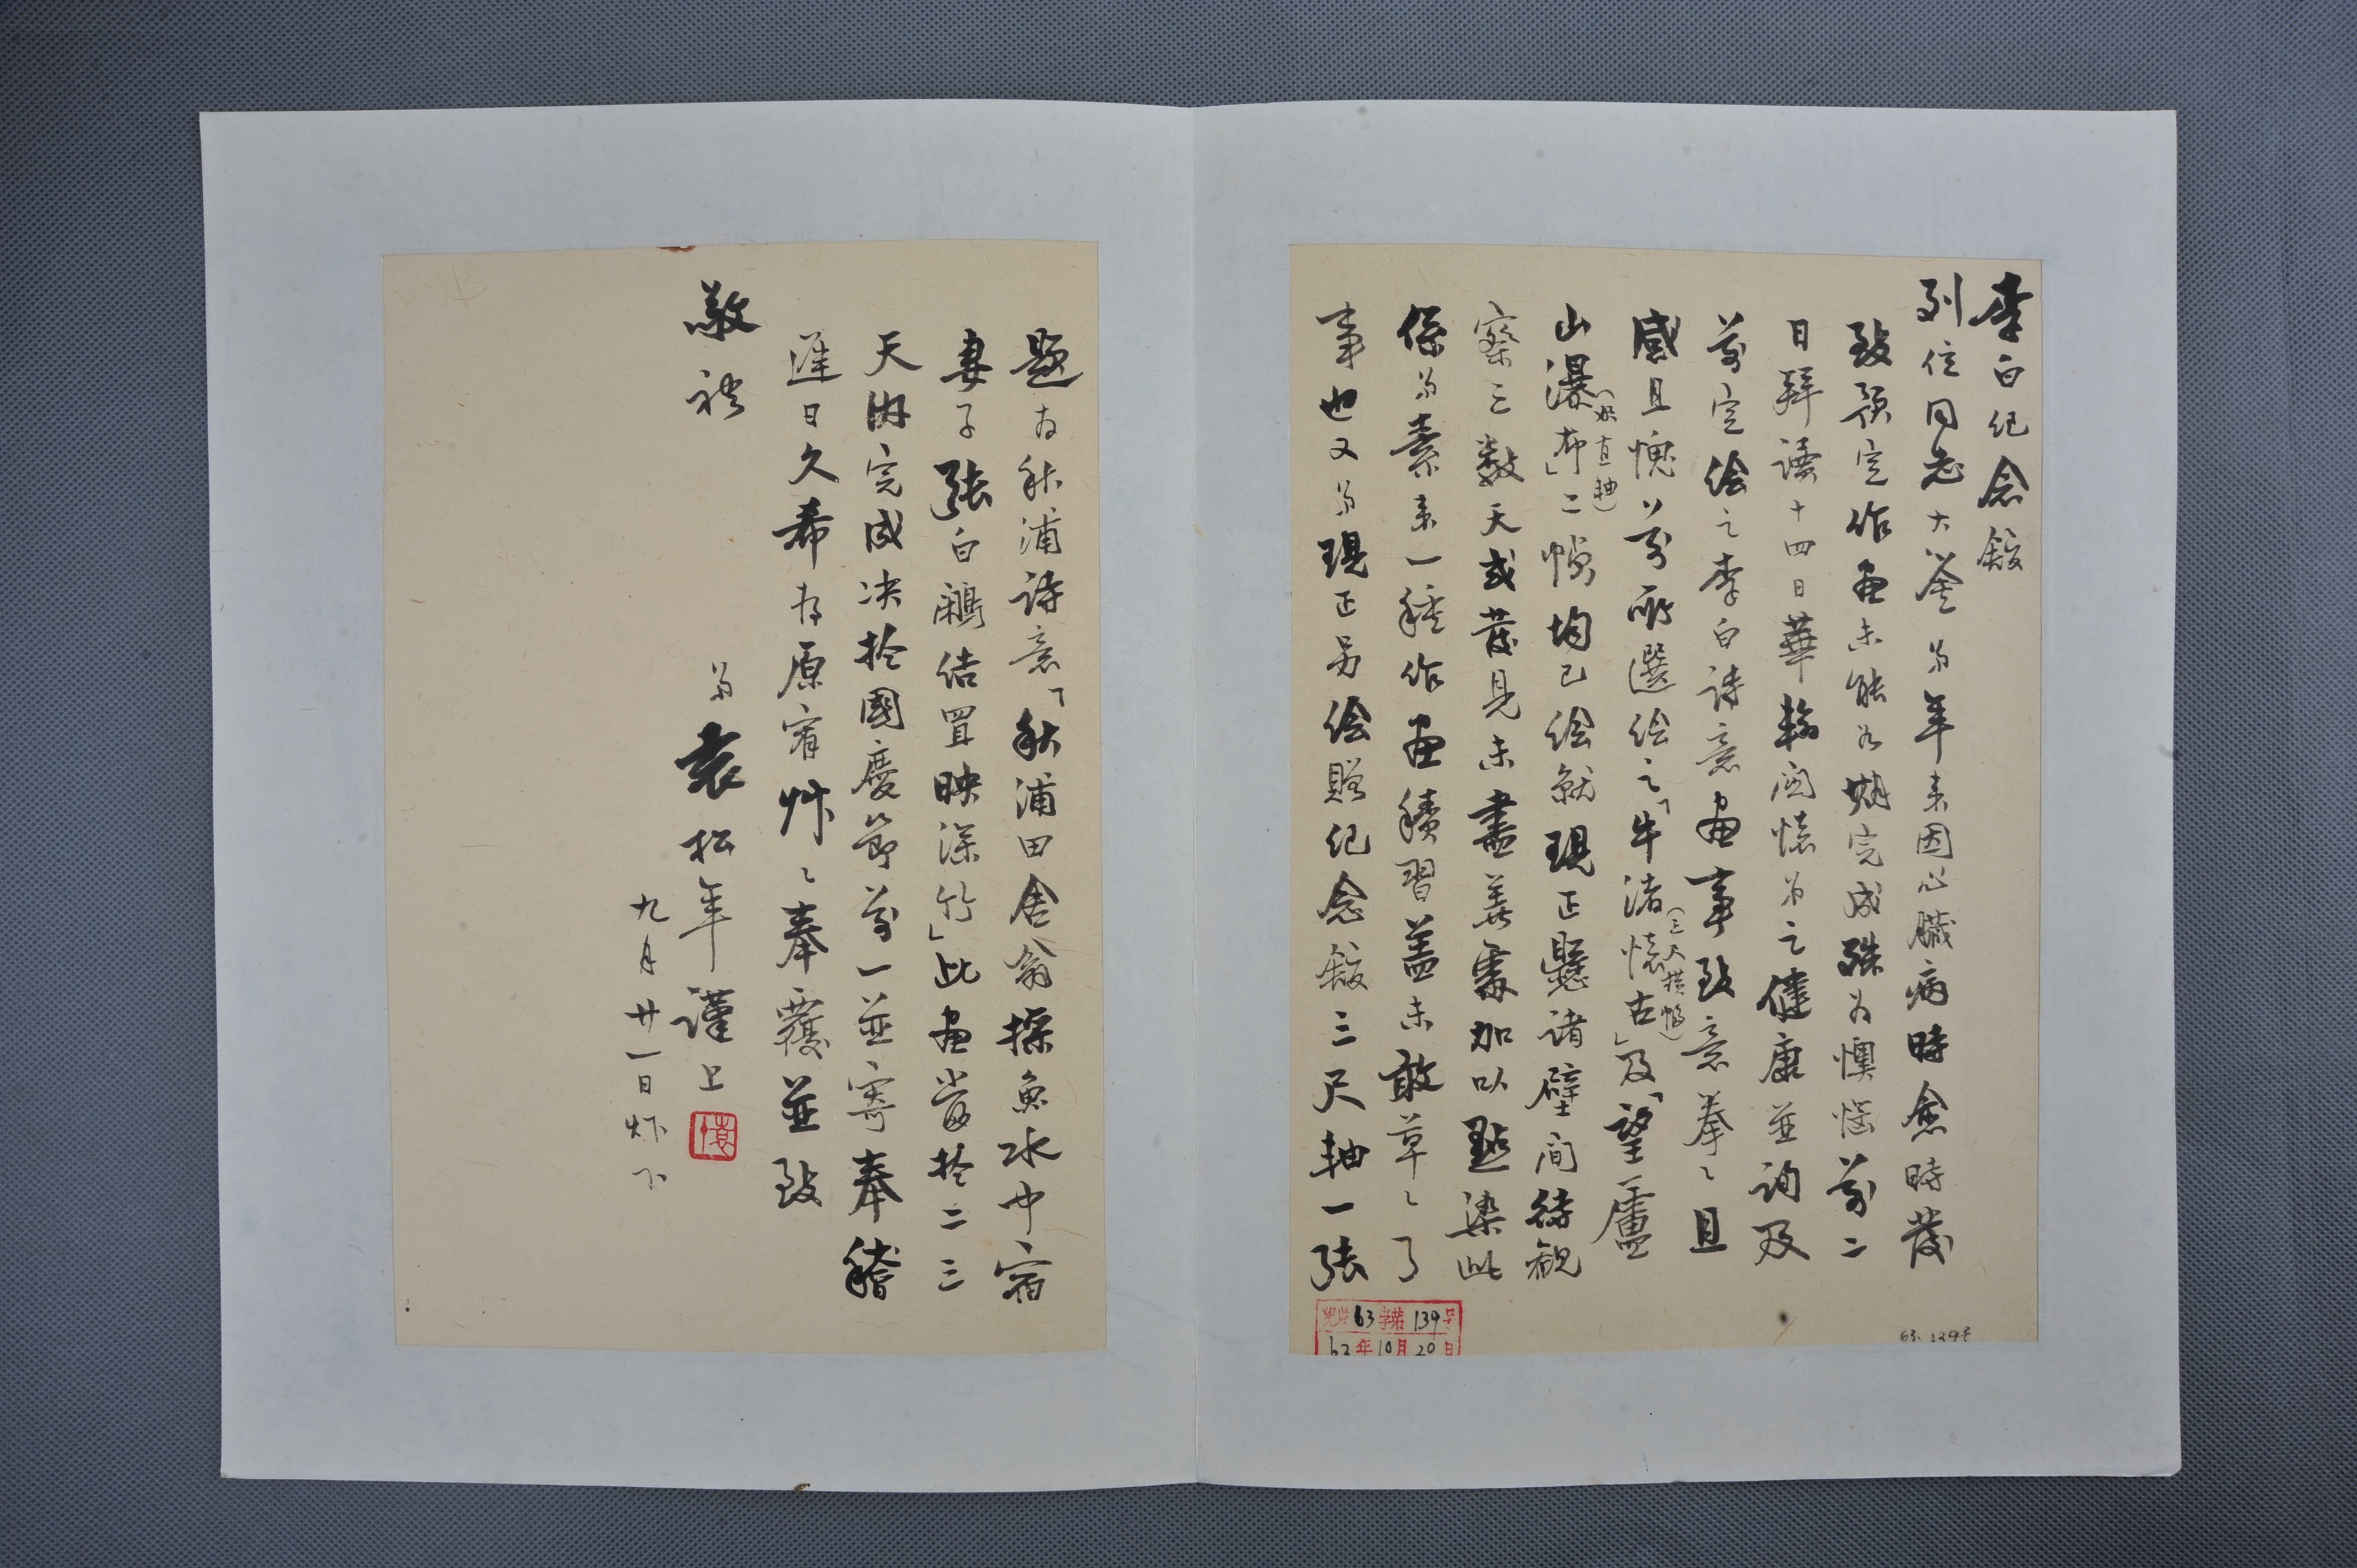 李白纪念館
列位同志大鉴 弟年来因心臓病時愈時發
致預定作画未能如期完成殊为懊惱前二
日拜讀十四日華翰関懷弟之健康並詢及
前定绘之李白诗意画事致意拳〻且
感且愧 前所選绘之「牛渚懷古」(三尺横幅)及「望廬
山瀑布」(水直軸)二幀均已绘就現正懸诸壁间待觀
察三數天或發見未盡善處加以點染此
係弟素来一種作画積習盖未敢草〻了
事也又弟現正另绘贈纪念館三尺軸一张
题为秋浦诗意「秋浦田舍翁採魚水中宿
妻子张白鷴结罝映深竹」此画當於二三
天内完成决於國慶節前一並寄奉稽
遲日久希为原宥草〻奉覆並致
敬礼
弟袁松年谨上
九月廿一日灯下
63 字第 139 号
63年10月20日
63.139号